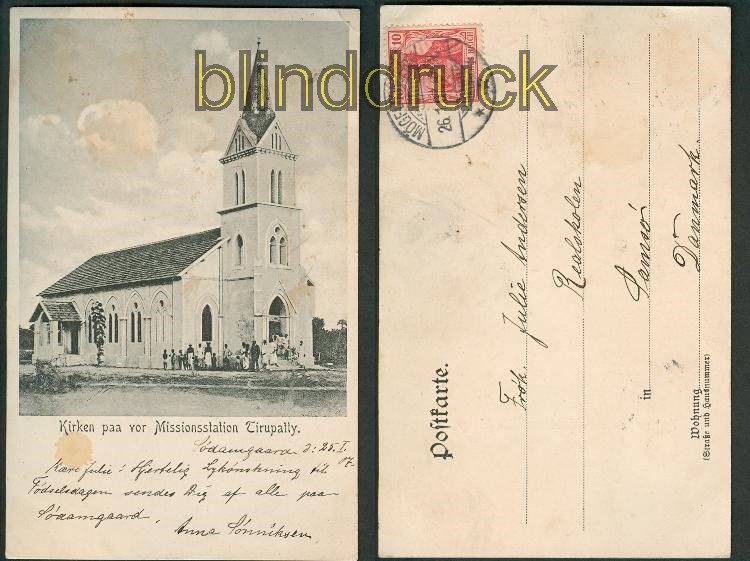 blinddruck
Kirken paa vor Missionsstation Tirupatty.
Södamgaard d: 25. I. 07.
Kære Julie! Hjertelig Lykönskning til
Födselsdagen sendes Dig af alle paa
Södamgaard.
Anna Sönniksen.
10
26.
Postkarte.
Frök. Julie Andersen
Realskolen
Samsö
in
Danmark
Wohnung
(Straße und Hausnummer)